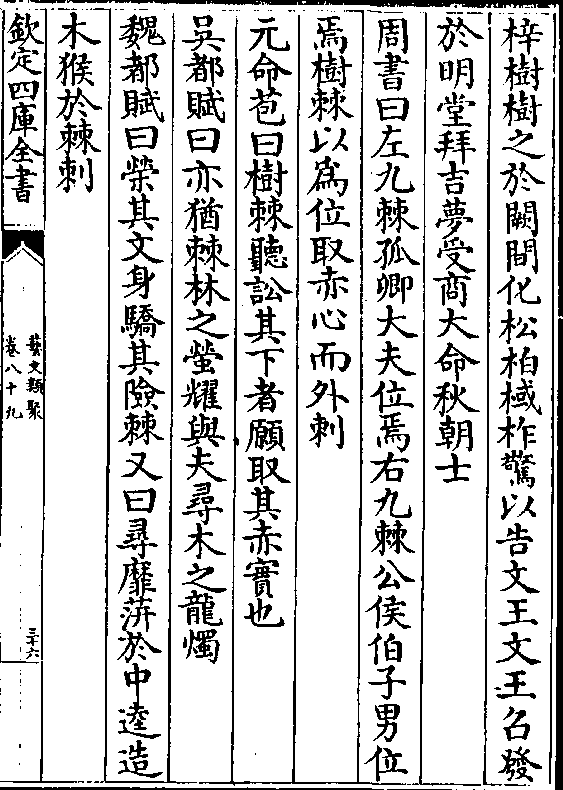 梓樹樹之於闕間化松柏棫柞驚以告文王文王召發
於明堂拜吉夢受商大命秋朝士
周書曰左九棘孤卿大夫位焉右九棘公侯伯子男位
焉樹棘以為位取赤心而外刺
元命苞曰樹棘聽訟其下者願取其赤實也
吳都賦曰亦猶棘林之螢耀與夫尋木之龍燭
魏都賦曰榮其文身驕其險棘又曰尋靡蓱於中逵造
木猴於棘刺
欽定四庫全書
藝文類聚
卷八十九
三十六